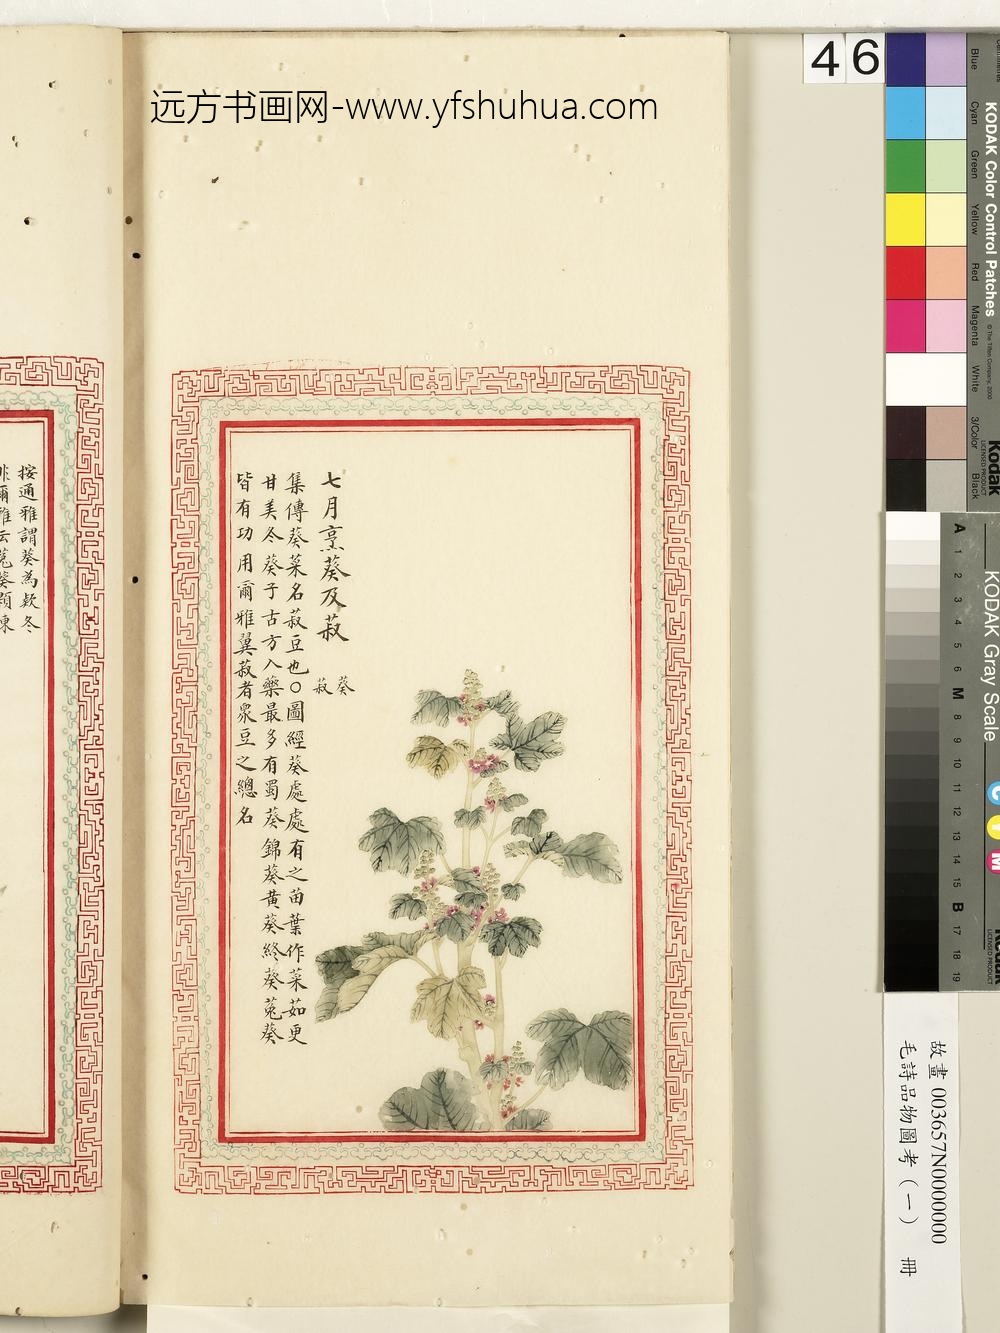 远方书画网-www.yfshuhua.com
46
七月烹葵及菽
葵
菽
集傳葵菜名菽豆也○圖經葵處處有之苗葉作菜茹更
甘美冬葵子古方入藥最多有蜀葵錦葵黃葵終葵菟葵
皆有功用爾雅翼菽者眾豆之總名
按通雅謂葵為款冬
非爾雅云菟葵顆凍
KODAK Color Control Patches
© The Tiffen Company, 2000
Kodak
LICENSED PRODUCT
Blue
Cyan
Green
Yellow
Red
Magenta
White
3/Color
Black
KODAK Gray Scale
A 1 2 3 4 5 6 M 8 9 10 11 12 13 14 15 B 17 18 19
C
Y
M
Kodak
LICENSED PRODUCT
故畫 003657N0000000
毛詩品物圖考（一） 冊